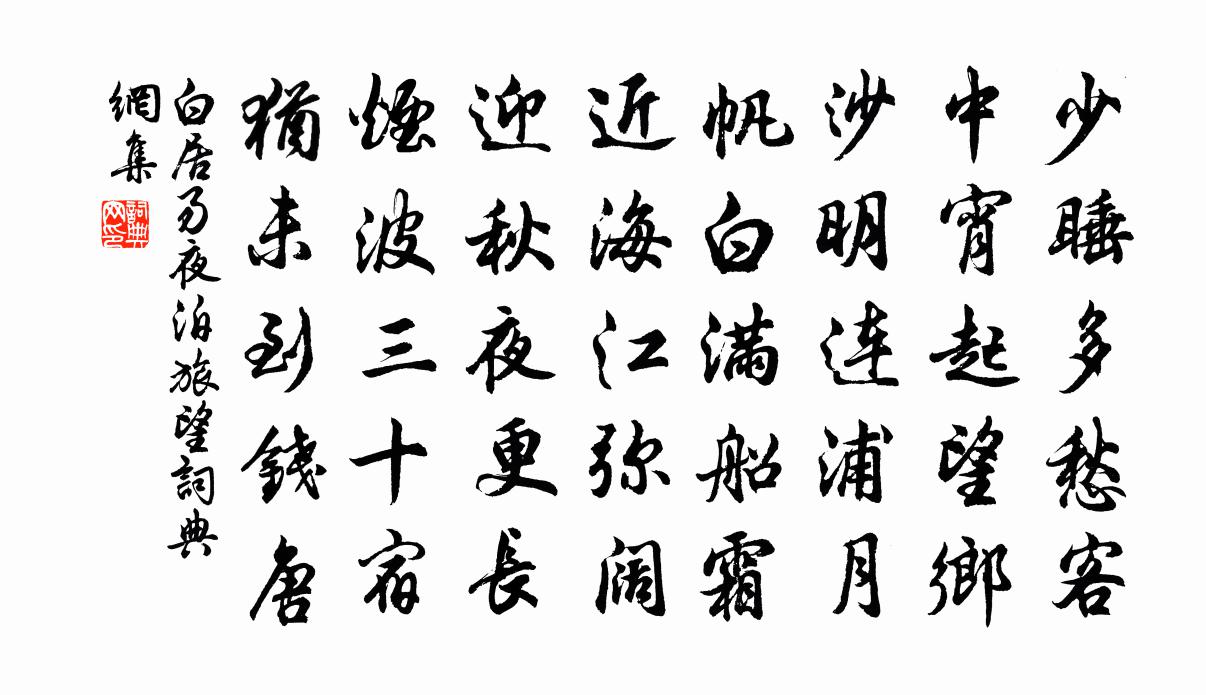 少睡多愁客
中宵起望鄉
沙明連浦月
帆白滿船霜
近海江弥阔
迎秋夜更長
煙波三十宿
猶未到錢唐
白居易夜泊旅望詞典
網集
詞典
网印